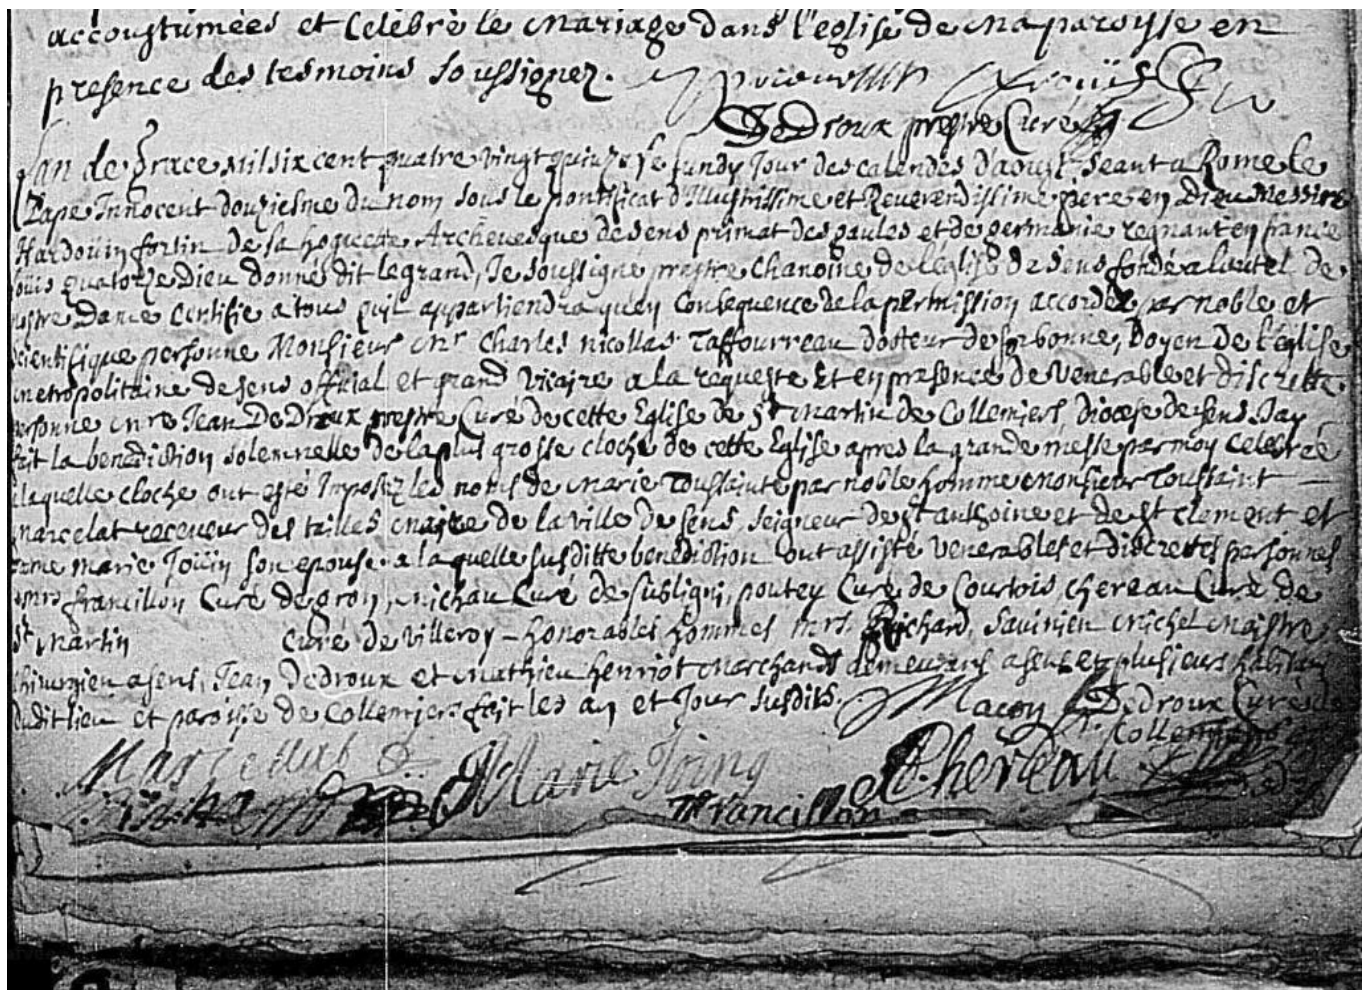 accoustumées et Celebré le mariage dans l'eglise de ma paroisse en
presence des tesmoins soussignez.
DeDroux prestre Curé
Lan de grace mil six cent quatre vingt quinze le lundy Jour des calendes d'aoust seant a Rome le
Pape Innocent douziesme du nom sous le pontificat d'Illustrissime et Reverendissime pere en Dieu Messire
Hardouin fortin de la hoguette Archevesque de sens primat des gaules et de germanie regnant en france
Louis quatorze Dieu donné dit le grand, Je soussigné prestre Chanoine de l'église de sens fondé a lautel de
nostre Dame certifie a tous quil appartiendra quen consequence de la permission accordée par noble et
scientifique personne Monsieur Mr Charles nicollas Taffourreau docteur de sorbonne, Doyen de l'église
metropolitaine de sens official et grand vicaire a la requeste Et en presence de venerable et discrette
personne mre Jean DeDroux prestre Curé de cette Eglise de St martin de Collemiers, diocese de sens Jay
fait la benediction solemnelle de la plus grosse cloche de cette Eglise apres la grande messe par moy Celebrée
a laquelle cloche ont esté Imposez les noms de Marie Toussainte par noble homme monsieur Toussaint
marcelat receveur des tailles maire de la ville de sens, seigneur de St anthoine et de St clement et
dame marie Jouin son epouse. a laquelle susditte benediction ont assisté venerables et discrettes personnes
mrs francillon Curé de gron, michau Curé de subligni, poutey Curé de Courtois chereau Curé de
St Martin curé de villeroy – honorables hommes mrs. Richard, Savinien Michel Maistre
chirurgien a sens, Jean Dedroux et mathieu henriot marchands demeurans a sens et plusieurs habitans
dudit lieu et paroisse de Collemiers fait les an et Jour susdits. Macon DeDroux Curé de
Collemiers
Marcellat Marie Joing Chereau
Michau francillon